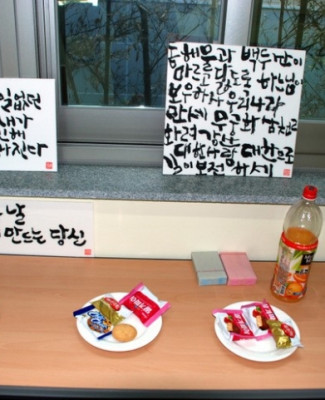 일없던
내가
진다
날
만드는 당신
동해물과 백두산이
마르고닳도록 하느님이
보우하사 우리나라
만세 무궁화 삼천리
화려강산
대한사람 대한으로
길이 보전 하세